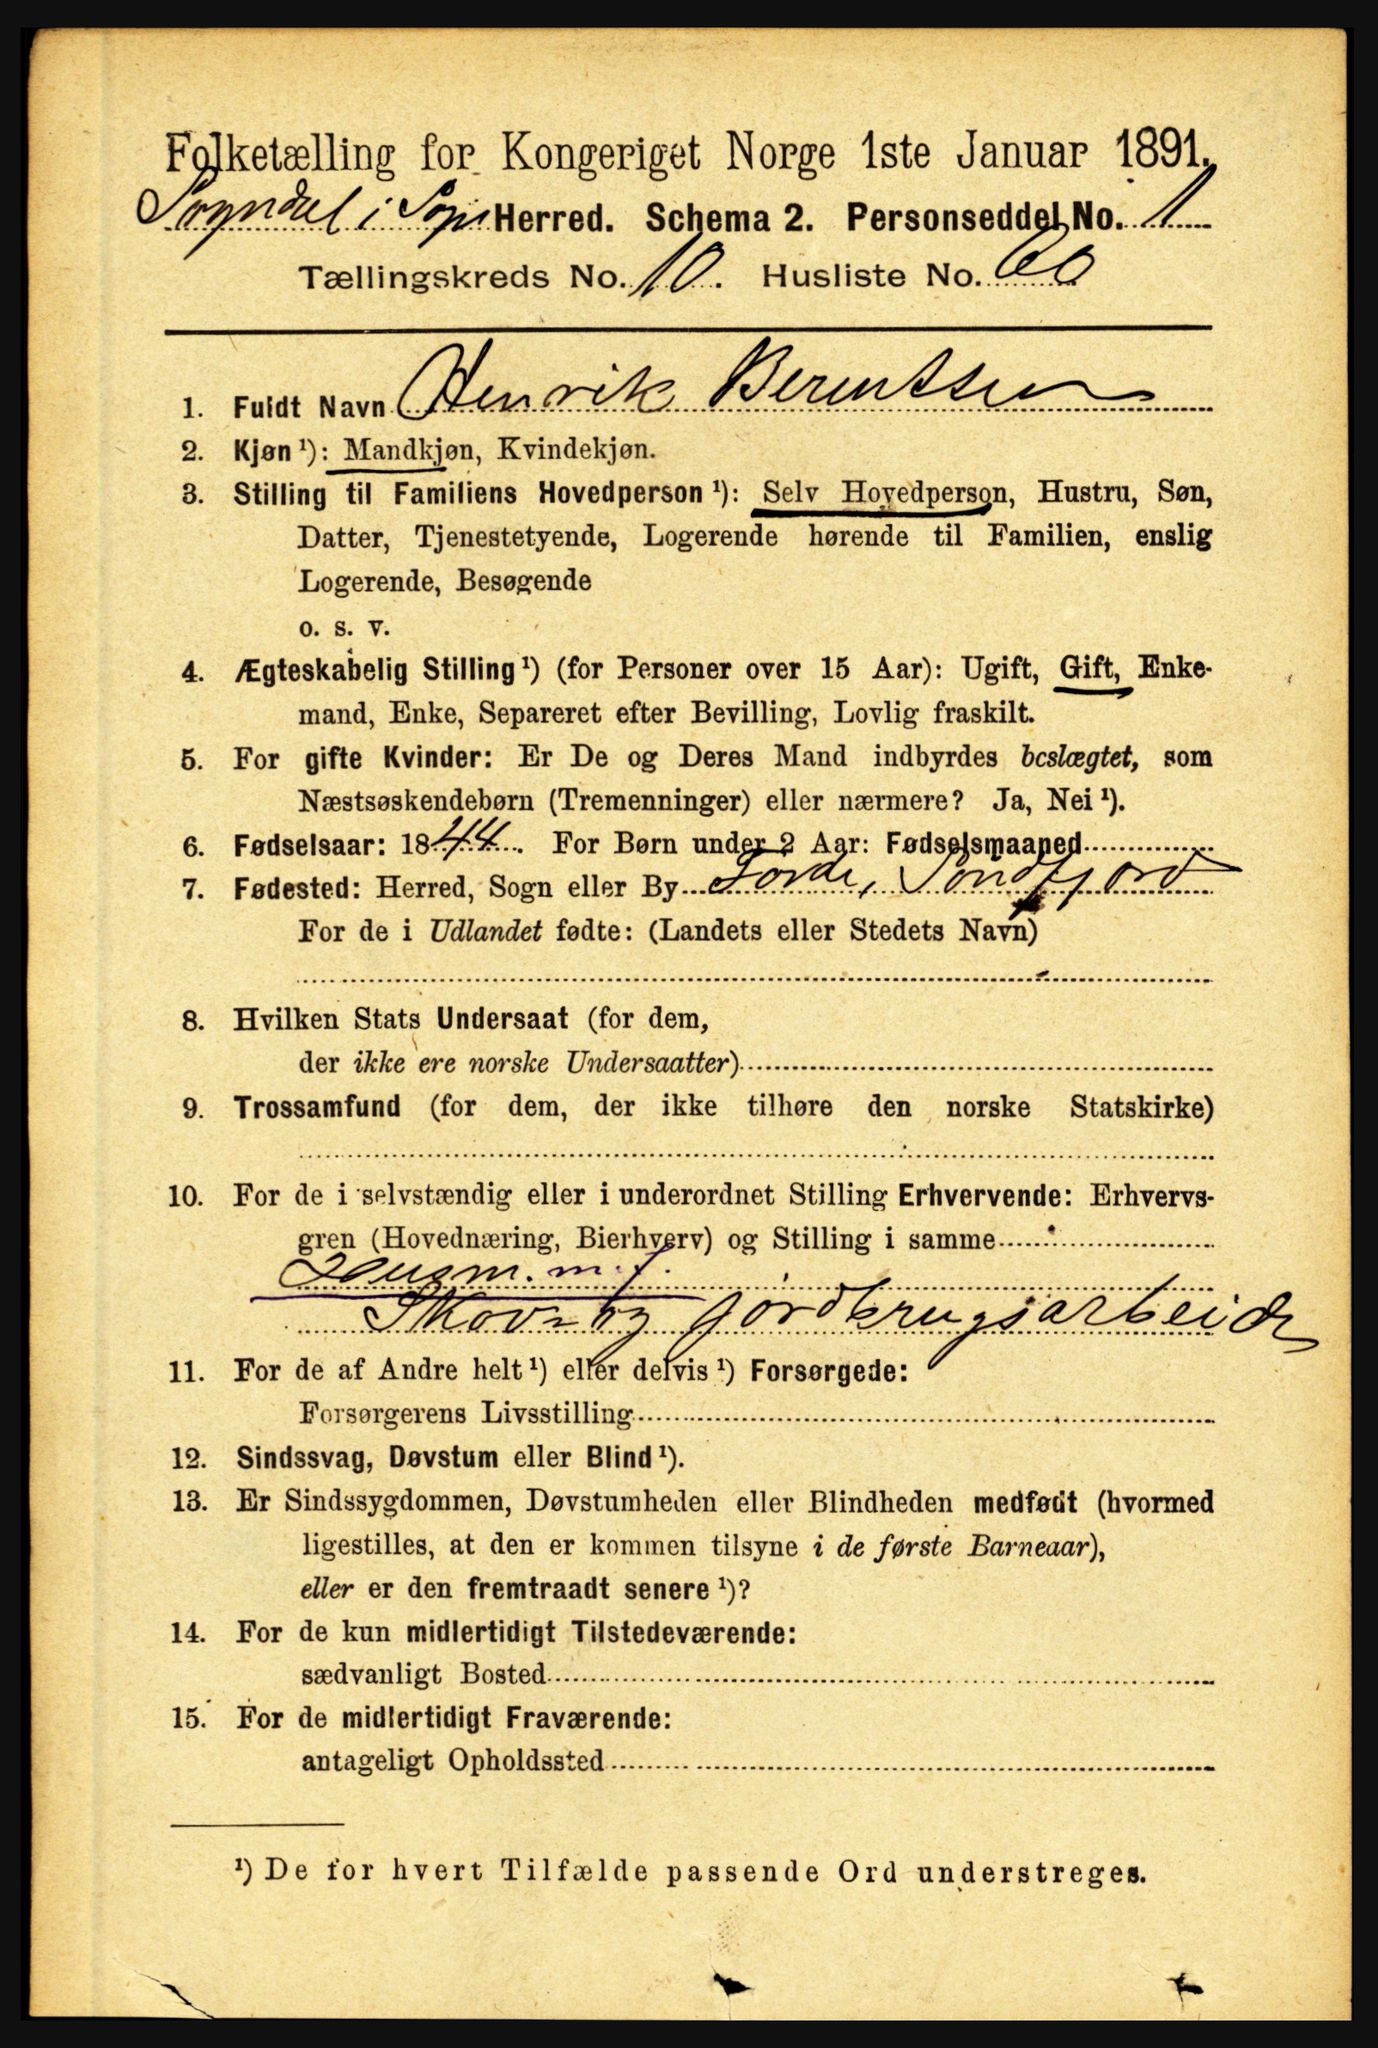 Folketælling for Kongeriget Norge 1ste Januar 1891.
Sogndal i Sogn Herred. Schema 2. Personseddel No. 1
Tællingskreds No. 10. Husliste No. 60
1. Fuldt Navn Henrik Berentsen
2. Kjøn ¹): Mandkjøn, Kvindekjøn.
3. Stilling til Familiens Hovedperson ¹): Selv Hovedperson, Hustru, Søn,
Datter, Tjenestetyende, Logerende hørende til Familien, enslig
Logerende, Besøgende
o. s. v.
4. Ægteskabelig Stilling ¹) (for Personer over 15 Aar): Ugift, Gift, Enke-
mand, Enke, Separeret efter Bevilling, Lovlig fraskilt.
5. For gifte Kvinder: Er De og Deres Mand indbyrdes beslægtet, som
Næstsøskendebørn (Tremenninger) eller nærmere? Ja, Nei ¹).
6. Fødselsaar: 1844. For Børn under 2 Aar: Fødselsmaaned
7. Fødested: Herred, Sogn eller By Førde, Søndfjord
For de i Udlandet fødte: (Landets eller Stedets Navn)
8. Hvilken Stats Undersaat (for dem,
der ikke ere norske Undersaatter)
9. Trossamfund (for dem, der ikke tilhøre den norske Statskirke)
10. For de i selvstændig eller i underordnet Stilling Erhvervende: Erhvervs-
gren (Hovednæring, Bierhverv) og Stilling i samme
Husm. m. j.
Skov- og jordbrugsarbeider
11. For de af Andre helt ¹) eller delvis ¹) Forsørgede:
Forsørgerens Livsstilling
12. Sindssvag, Døvstum eller Blind ¹).
13. Er Sindssygdommen, Døvstumheden eller Blindheden medfødt (hvormed
ligestilles, at den er kommen tilsyne i de første Barneaar),
eller er den fremtraadt senere ¹)?
14. For de kun midlertidigt Tilstedeværende:
sædvanligt Bosted
15. For de midlertidigt Fraværende:
antageligt Opholdssted
¹) De for hvert Tilfælde passende Ord understreges.